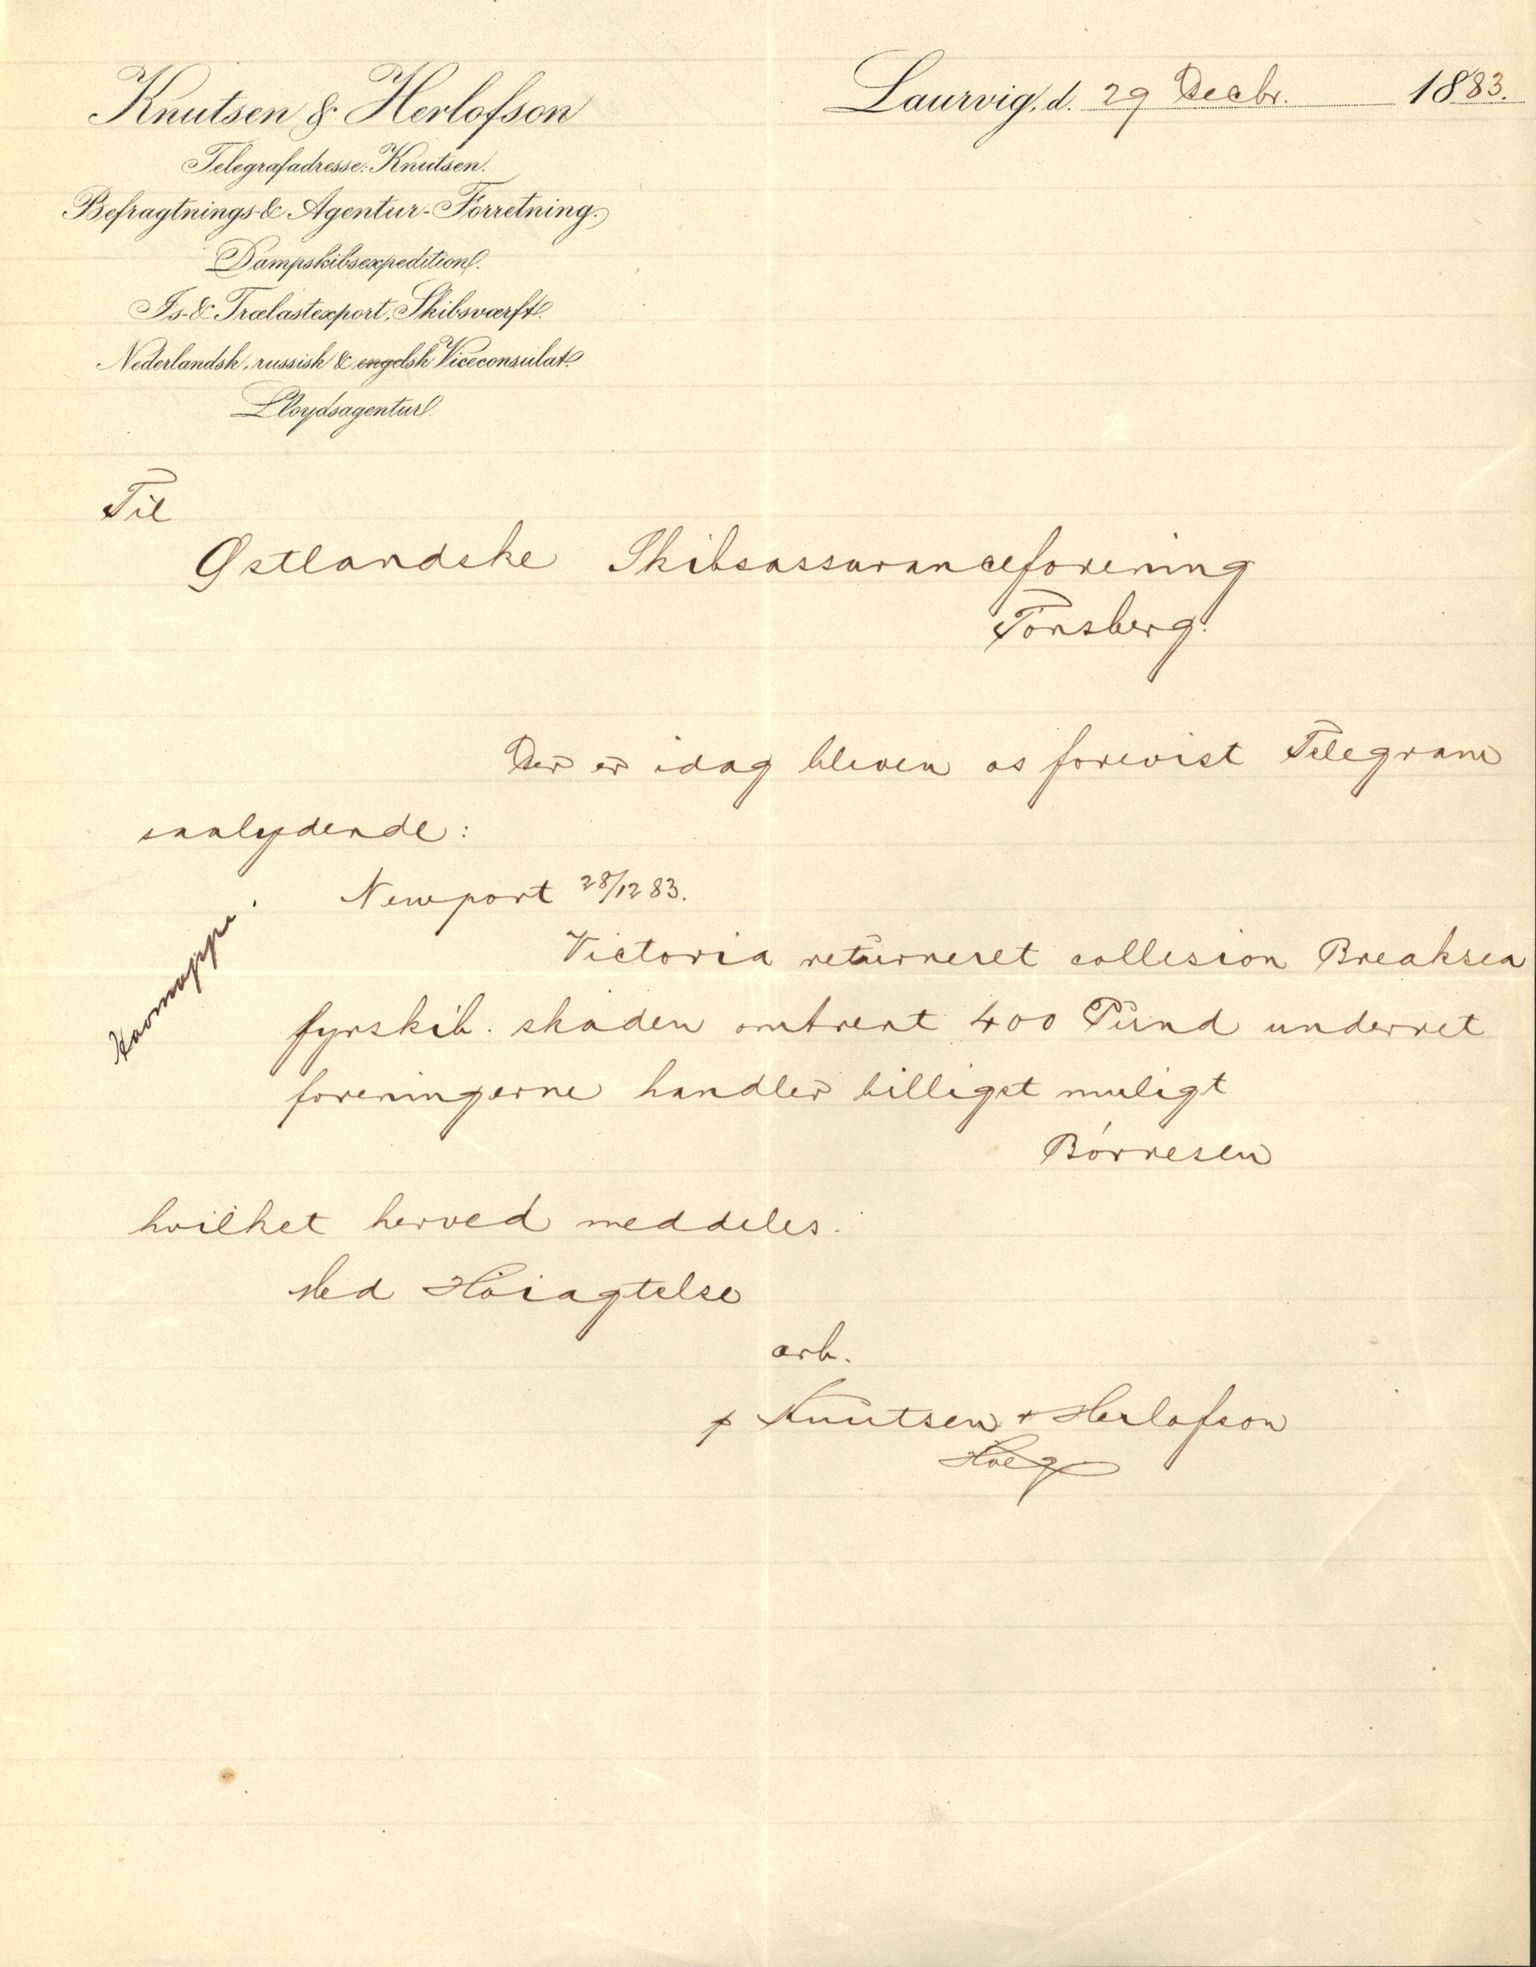 Knutsen & Herlofson
Telegrafadresse: Knutsen.
Befragtnings- & Agentur-Forretning.
Dampskibsexpedition.
Is- & Trælastexport, Skibsværft.
Nederlandsk, russisk & engelsk Viceconsulat.
Lloydsagentur.
Laurvig, d. 29 Decbr. 1883.
Til
Østlandske Skibsassuranceforening
Tønsberg.
Der er idag bleven os forevist Telegram
saalydende:
Newport 28/12 83.
Victoria returneret collesion Breaksea
fyrskib. skaden omtrent 400 Pund underret
foreningerne handler billigst muligt
Børresen
hvilket herved meddeles.
Med Høiagtelse
erb.
p Knutsen & Herlofson